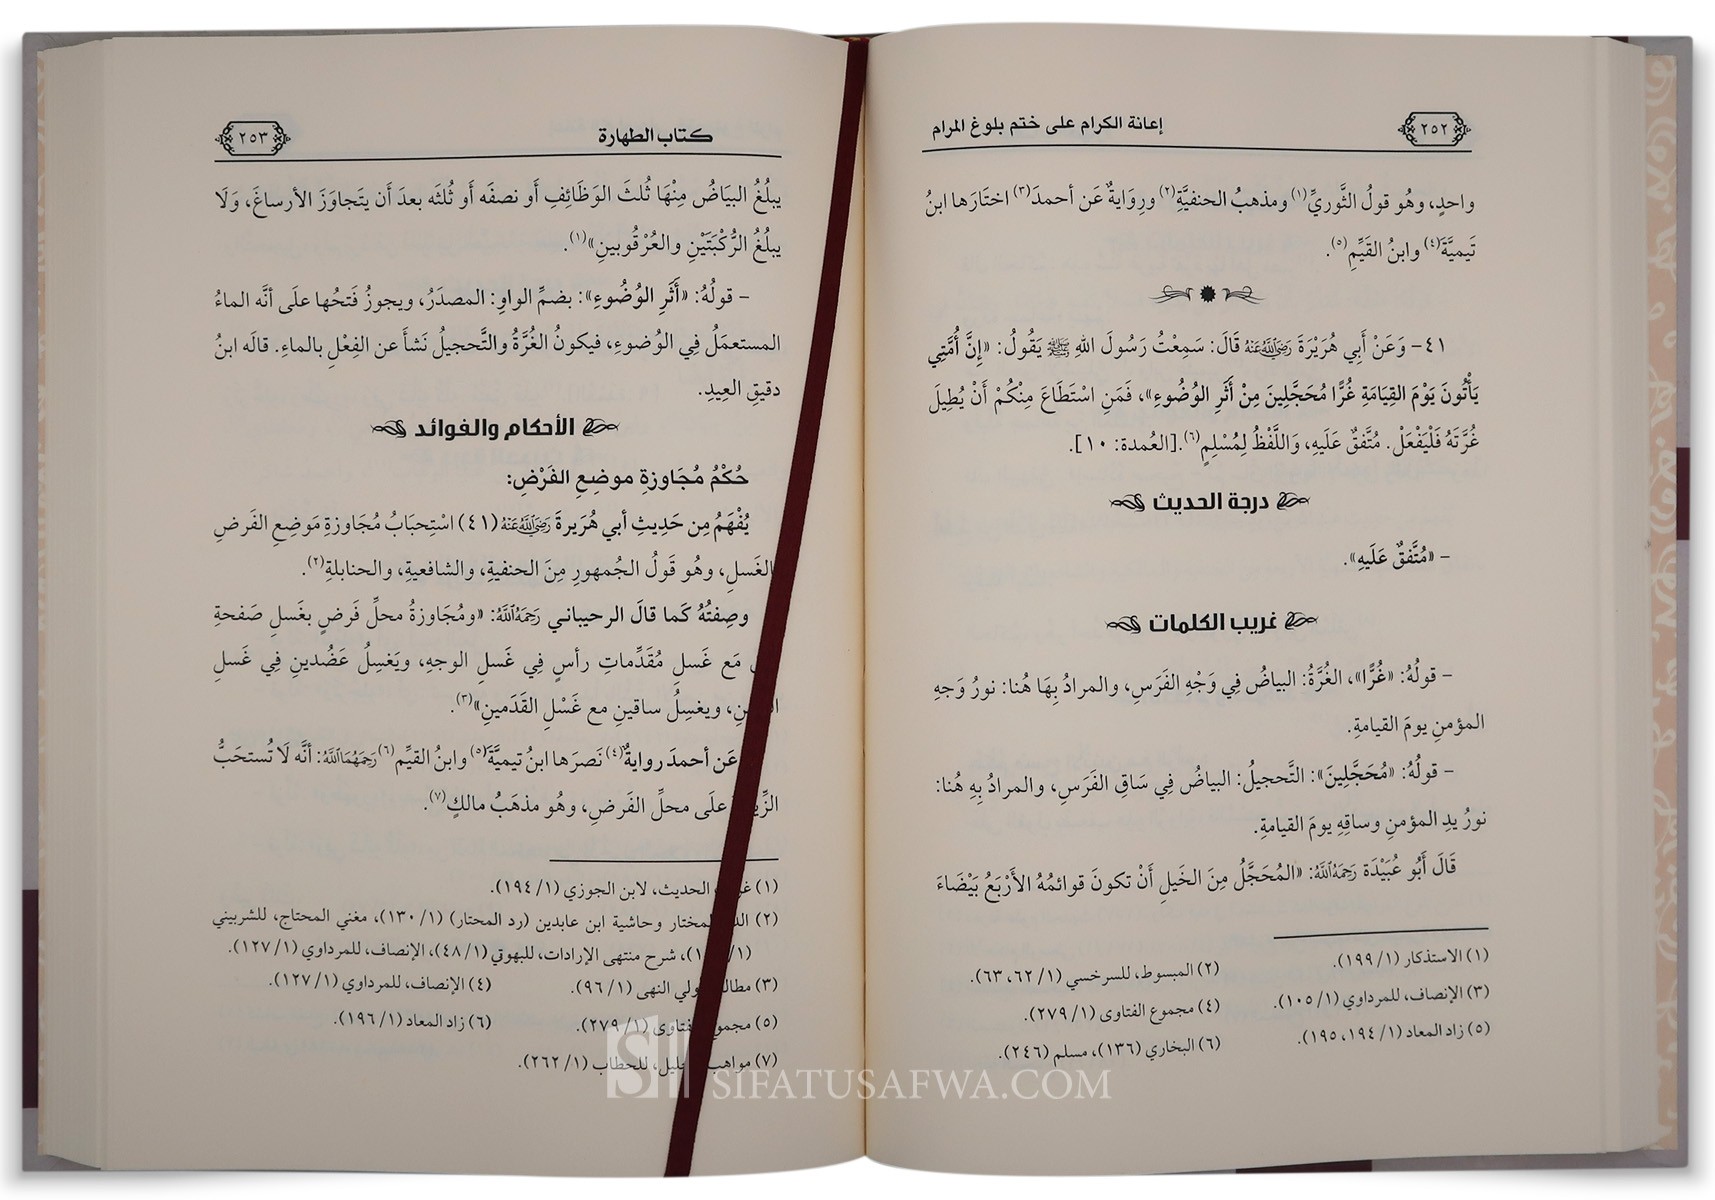 ٢٥٢
إعانة الكرام على ختم بلوغ المرام
واحدٍ، وهُو قولُ الثَّوريِّ(١) ومذهبُ الحنفيَّةِ(٢) ورِوَايةٌ عَن أحمدَ(٣) اختَارَها ابنُ
تَيميَّةَ(٤) وابنُ القَيِّمِ(٥).
٤١- وَعَنْ أَبِي هُرَيْرَةَ رَضِيَ اللَّهُ عَنْهُ قَالَ: سَمِعْتُ رَسُولَ اللهِ ﷺ يَقُولُ: «إِنَّ أُمَّتِي
يَأْتُونَ يَوْمَ القِيَامَةِ غُرًّا مُحَجَّلِينَ مِنْ أَثَرِ الوُضُوءِ»، فَمَنِ اسْتَطَاعَ مِنْكُمْ أَنْ يُطِيلَ
غُرَّتَهُ فَلْيَفْعَلْ. مُتَّفقٌ عَلَيهِ، وَاللَّفْظُ لِمُسْلِمٍ(٦). [العُمدة: ١٠].
درجة الحديث
- «مُتَّفقٌ عَلَيهِ».
غريب الكلمات
- قولُهُ: «غُرًّا»، الغُرَّةُ: البياضُ فِي وَجْهِ الفَرَسِ، والمرادُ بِهَا هُنا: نورُ وَجهِ
المؤمنِ يومَ القيامةِ.
- قولُهُ: «مُحَجَّلِينَ»: التَّحجيلُ: البياضُ فِي سَاقِ الفَرَسِ، والمرادُ بِهِ هُنا:
نورُ يدِ المؤمنِ وساقِهِ يومَ القيامةِ.
قَالَ أَبُو عُبَيْدَة رَحِمَهُ اللَّهُ: «المُحَجَّلُ مِنَ الخَيلِ أَنْ تكونَ قوائمُهُ الأَرْبَعُ بَيْضَاءَ
(١) الاستذكار (١/ ١٩٩).
(٢) المبسوط، للسرخسي (١/ ٦٢، ٦٣).
(٣) الإنصاف، للمرداوي (١/ ١٠٥).
(٤) مجموع الفتاوى (١/ ٢٧٩).
(٥) زاد المعاد (١/ ١٩٤، ١٩٥).
(٦) البخاري (١٣٦)، مسلم (٢٤٦).
كتاب الطهارة
٢٥٣
يبلُغُ البَيَاضُ مِنْهَا ثُلثَ الوَظَائِفِ أَو نصفَه أَو ثُلثَه بعدَ أَن يتَجاوَزَ الأرساغَ، وَلَا
يبلُغُ الرُّكْبَتَيْنِ والعُرْقُوبينِ»(١).
- قولُهُ: «أَثَرِ الوُضُوءِ»: بضمِّ الواوِ: المصدَرُ، ويجوزُ فَتحُها علَى أنَّه الماءُ
المستعمَلُ فِي الوُضوءِ، فيكونُ الغُرَّةُ والتَّحجيلُ نَشأَ عن الفِعْلِ بالماءِ. قالَه ابنُ
دقيقِ العِيدِ.
الأحكام والفوائد
حُكْمُ مُجَاوزةِ موضِعِ الفَرْضِ:
يُفْهَمُ مِن حَدِيثِ أبي هُرَيرةَ رَضِيَ اللَّهُ عَنْهُ (٤١) اسْتِحبَابُ مُجَاوزةِ مَوضِعِ الفَرضِ
الغَسلِ، وهُو قَولُ الجُمهورِ مِنَ الحنفيةِ، والشافعيةِ، والحنابلةِ(٢).
وصِفتُهُ كَما قالَ الرحيباني رَحِمَهُ اللَّهُ: «ومُجَاوزةُ محلِّ فَرضٍ بغَسلِ صَفحةِ
مَع غَسلِ مُقَدِّماتِ رأسٍ فِي غَسلِ الوجهِ، ويَغسِلُ عَضُدينِ فِي غَسلِ
، ويغسِلُ ساقينِ مع غَسْلِ القَدَمينِ»(٣).
عَن أحمدَ روايةٌ(٤) نَصرَها ابنُ تيميَّةَ(٥) وابنُ القيِّمِ(٦) رَحِمَهُمَا اللَّهُ: أنَّه لَا تُستحَبُّ
علَى محلِّ الفَرضِ، وهُو مذهَبُ مالكٍ(٧).
(١) الحديث، لابن الجوزي (١/ ١٩٤).
(٢) المختار وحاشية ابن عابدين (رد المحتار) (١/ ١٣٠)، مغني المحتاج، للشربيني
شرح منتهى الإرادات، للبهوتي (١/ ٤٨)، الإنصاف، للمرداوي (١/ ١٢٧).
(٣) أولي النهى (١/ ٩٦).
(٤) الإنصاف، للمرداوي (١/ ١٢٧).
(٥) مجموع الفتاوى (١/ ٢٧٩).
(٦) زاد المعاد (١/ ١٩٦).
(٧) مواهب الجليل، للحطاب (١/ ٢٦٢).
SIFATUSAFWA.COM